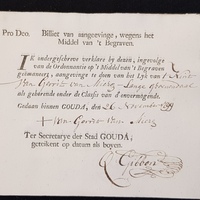 Pro Deo. Billiet van aangeevinge, wegens het
Middel van 't Begraven.
IK ondergeschreve verklare by dezen, ingevolge
van de Ordonnantie op 't Middel van 't Begraven
geëmaneert, aangevinge te doen van het Lyk van 1 Kint
van Gerrit van
als gehorende onder de Classis van d'onvermogende.
Gedaan binnen GOUDA, den 26 November
van Gerrit van
Ter Secretarye der Stad GOUDA,
getekent op datum als boven.